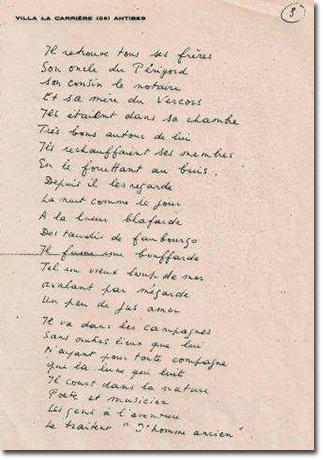 VILLA LA CARRIÈRE (06) ANTIBES
3
Il retrouve tous ses frères
Son oncle du Périgord
son cousin le notaire
Et sa mère du Vercors
Ils étaient dans sa chambre
Très bons autour de lui
Ils rechauffaient ses membres
En le fouettant au buis.
Depuis il les regarde
La nuit comme le jour
A la lueur blafarde
Des taudis de faubourgs
Il fume une bouffarde
Tel un vieux loup de mer
avalant par mégarde
Un peu de jus amer
Il va dans les campagnes
Sans autres lieux que lui
N'ayant pour toute compagne
que la lune qui luit
Il court dans la nature
Poète et musicien
Les gens à l'aventure
Le traitent "d'homme ancien".